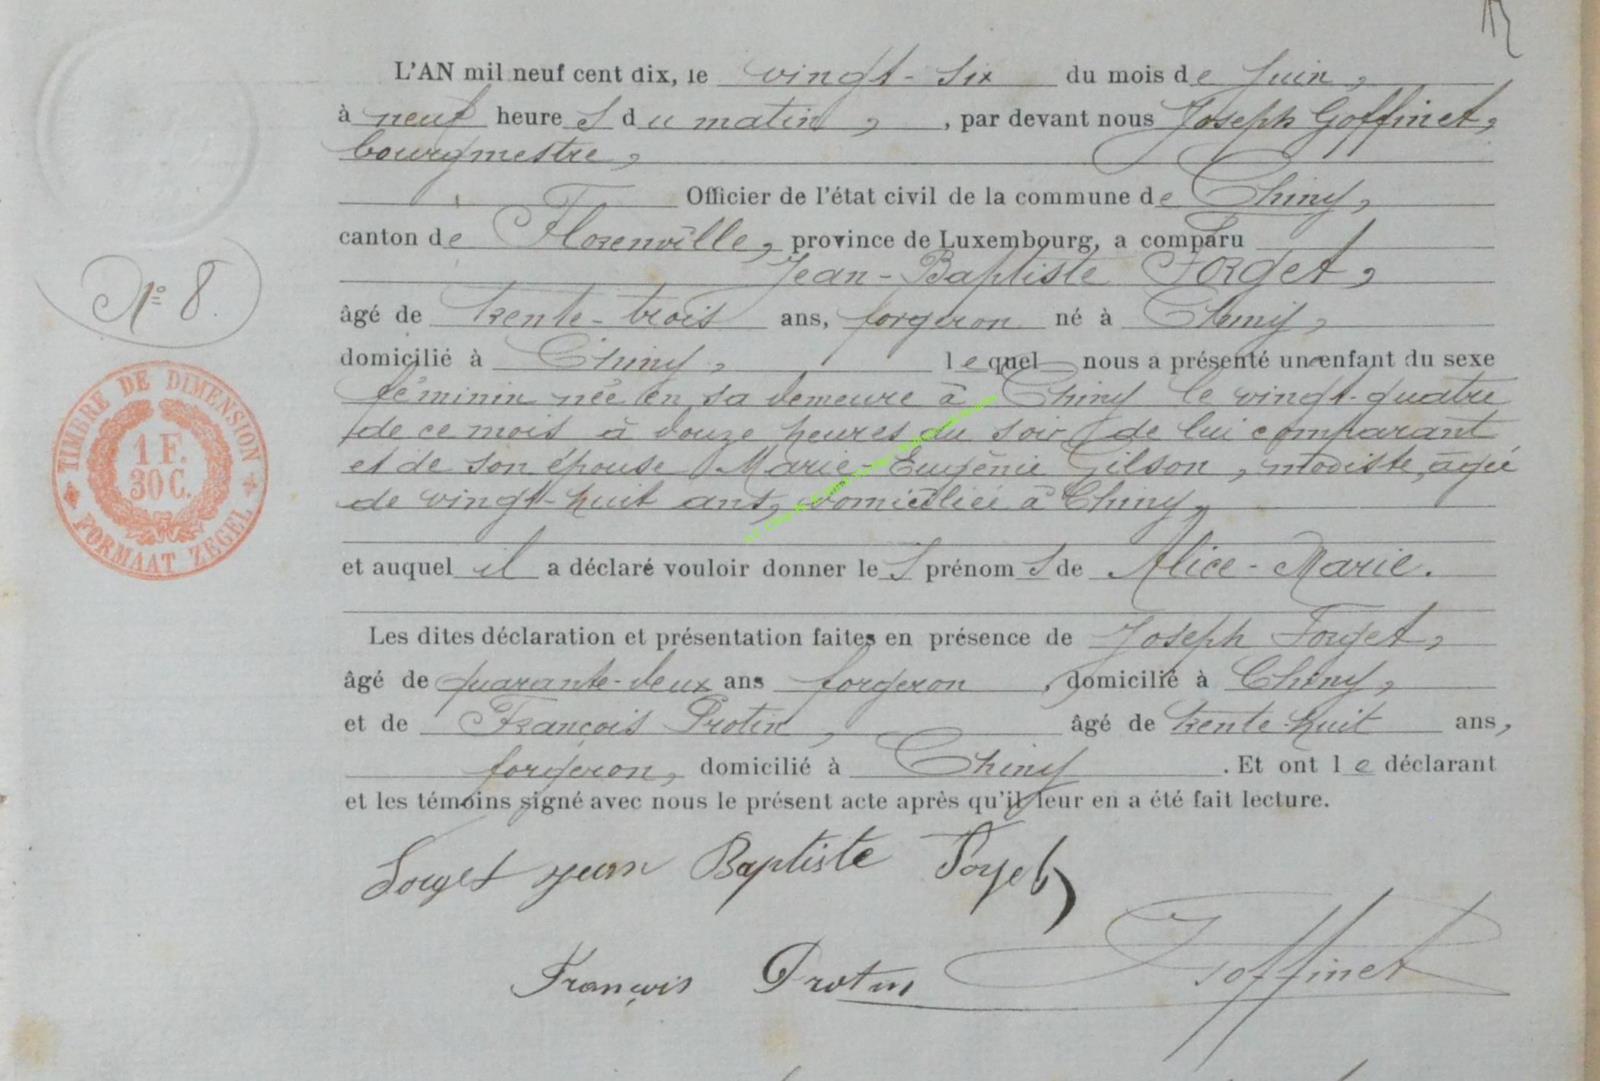 L'AN mil neuf cent dix, le vingt-six du mois de Juin,
à neuf heures du matin, , par devant nous Joseph Goffinet,
bourgmestre,
Officier de l'état civil de la commune de Chiny,
canton de Florenville, province de Luxembourg, a comparu
Jean-Baptiste Forget,
N° 8.
âgé de trente-trois ans, forgeron né à Chiny,
domicilié à Chiny, lequel nous a présenté un enfant du sexe
féminin née en sa demeure à Chiny le vingt-quatre
de ce mois à douze heures du soir de lui comparant
et de son épouse Marie-Eugénie Gilson, modiste, âgée
de vingt-huit ans, domiciliée à Chiny,
TIMBRE DE DIMENSION
1 F.
30 C.
FORMAAT ZEGEL
et auquel il a déclaré vouloir donner les prénoms de Alice-Marie.
Les dites déclaration et présentation faites en présence de Joseph Forget,
âgé de quarante-deux ans forgeron, domicilié à Chiny,
et de François Protin, âgé de trente-huit ans,
forgeron, domicilié à Chiny. Et ont le déclarant
et les témoins signé avec nous le présent acte après qu'il leur en a été fait lecture.
Forget jean Baptiste Forget
François Protin JGoffinet